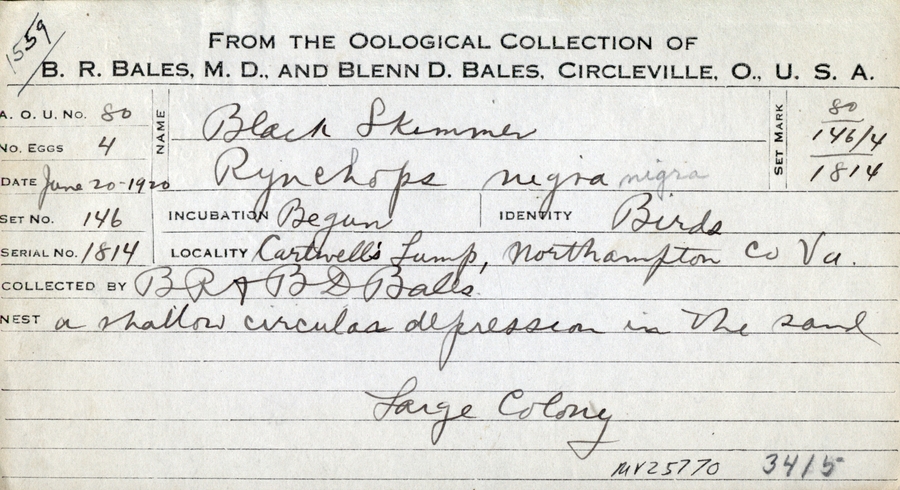 1559
FROM THE OOLOGICAL COLLECTION OF
B. R. BALES, M. D., AND BLENN D. BALES, CIRCLEVILLE, O., U. S. A.
A. O. U. No. 80
NAME Black Skimmer
SET MARK 80
146/4
1814
No. EGGS 4
DATE June 20-1920
Rynchops nigra nigra
SET No. 146
INCUBATION Begun
IDENTITY Birds
SERIAL No. 1814
LOCALITY Cartwell's Lump, Northampton Co Va.
COLLECTED BY B R & B D Bales.
NEST a shallow circular depression in the sand
Large Colony
MV25770 3415